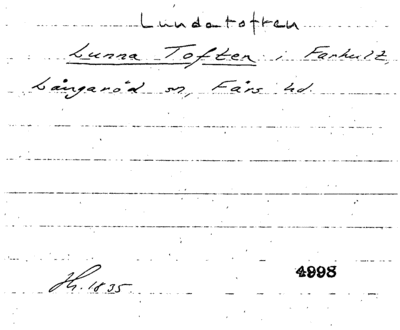 Lundatoften
Lunna Toften i Farhult,
Långaröd sn, Färs hd.
4998
Hh. 1835